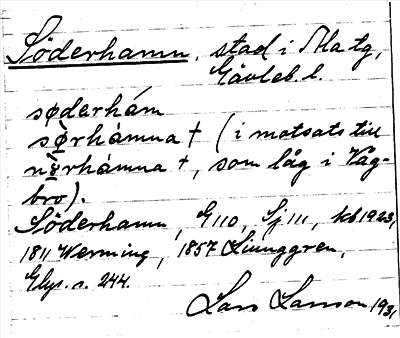 Söderhamn, stad i Ala tg,
Gävleb. l.
sødǝrhám
sø̀rhámna † ( i motsats till
nø̀rhámna †, som låg i Väg-
bro).
Söderhamn, G 110, Sj. 111, kb 1923,
1811 Werming, 1857 Ljunggren,
Glyp. s. 244.
Lars Larsson 1931